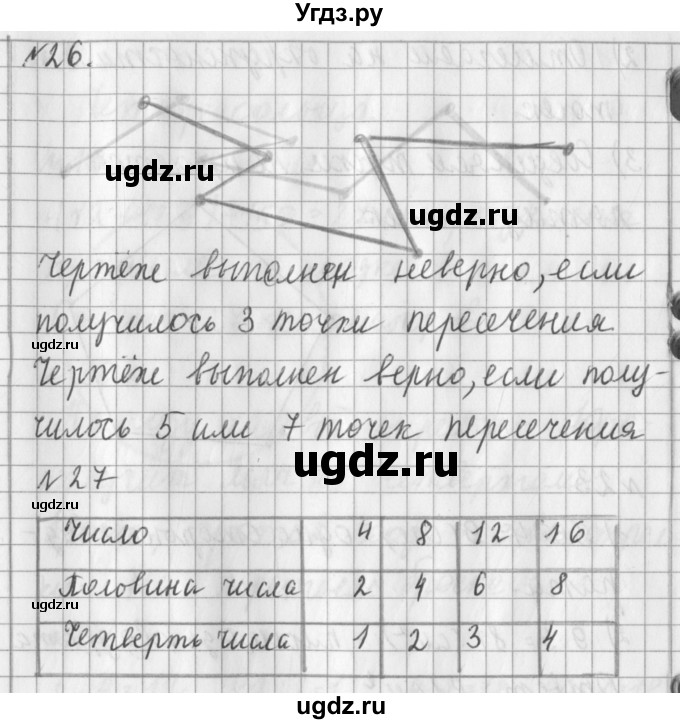 Угдз.ру
№26.
ugdz.ru
ugdz.ru
Чертёж выполнен неверно, если
получилось 3 точки пересечения
ugdz.ru
Чертёж выполнен верно, если полу-
чилось 5 или 7 точек пересечения
ugdz.ru
№27
ugdz.ru
Число 4 8 12 16
Половина числа 2 4 6 8
ugdz.ru
Четверть числа 1 2 3 4
ugdz.ru
ugdz.ru